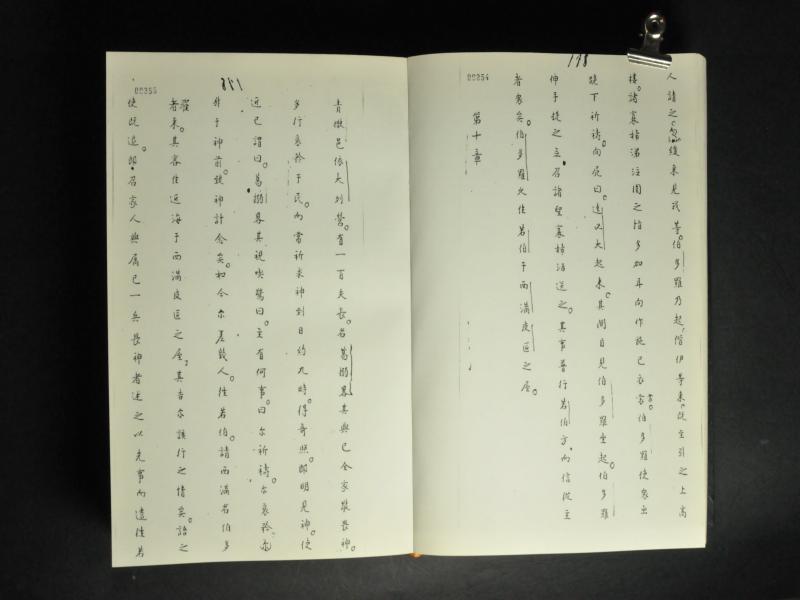 198
00254
人請之。忽緩來見我等。伯多羅乃起，偕伊等來。既至引之上高
樓。諸寡婦涕泣圍之指多加耳向作施已衣裳。伯多羅使眾出
跪下祈禱。向尻曰。達以大起來。其開目見伯多羅坐起。伯多羅
伸手提之立。召諸聖寡婦活送之。其事普行若伯方。而信從主
者眾矣。伯多羅久住若伯于西滿皮匠之屋。
第十章
198
00255
責撒邑依大列營。有一百夫長。名葛搦畧其與已全家敬畏神。
多行哀矜于民。而當祈求神到日約九時。得奇照。郎明見神使
近已謂曰。葛搦畧其視唉驚曰。主有何事。曰尔祈禱。尔哀矜
升于神前。致神計念矣。和今尔差數人。往若伯。請西滿名伯多
羅者來。其客住近海于西滿皮匠之屋。其告尔該行之情矣。語之
使既退。郎召家人與屬已一兵畏神者述之以先事而遣往若